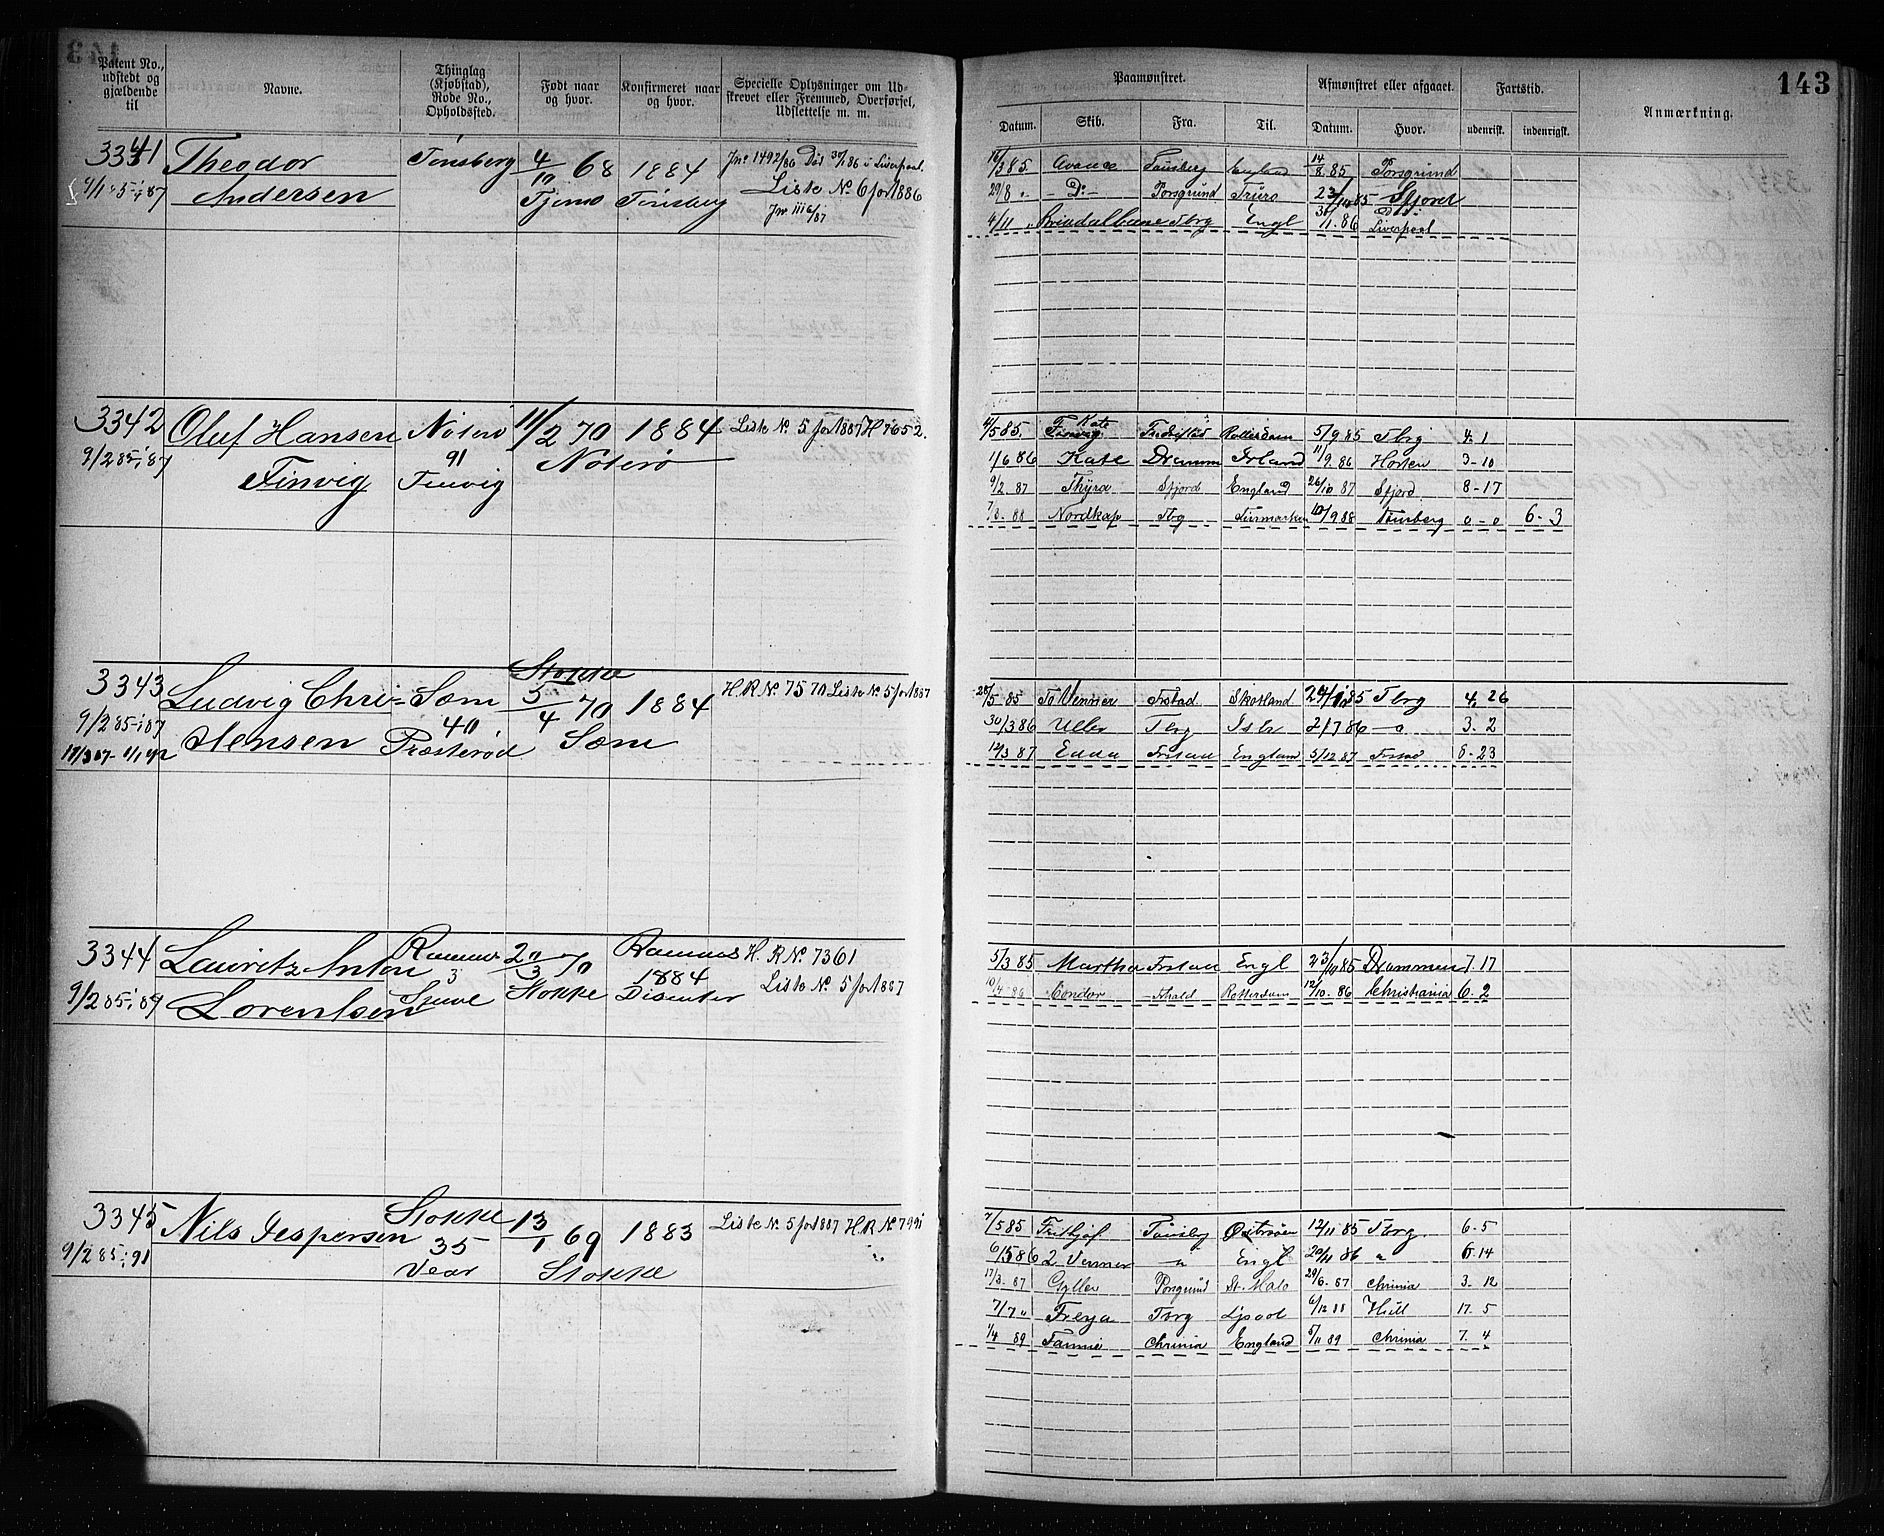 143
Patent No., udstedt og gjældende til
Navne.
Thinglag (Kjøbstad), Rode No., Opholdssted.
Født naar og hvor.
Konfirmeret naar og hvor.
Specielle Oplysninger om Udskrevet eller Fremmed, Overførsel, Udslettelse m. m.
Paamønstret.
Afmønstret eller afgaaet.
Fartstid.
Anmærkning.
Datum. Skib. Fra. Til. Datum. Hvor. udenrigs. indenrigs.
3341 Theodor Tønsberg 4/10 68 1884 Jnr 1492/86 Død 30/1 86 i Liverpool
Andersen Tjømø Tønsberg Liste No 6 for 1886
Jnr 1116/87
85 Avance Tønsberg England 14/8 85 Porsgrund
29/8 " - Do - Porsgrund Truro 23/10 85 Sfjord
4/11 " Tbrg Engl 30/1 86 Død Liverpool
3342 Oluf Hansen Nøterø 11/2 70 1884 Liste No 5 for 1887 H 7652
9/2 85-i 87 Finvig 91 Finvig Nøterø
85 Kate Rotterdam 5/9 85 Tbrg 4. 1
1/6 86 Kate Dramm Irland 11/9 86 Horten 3-10
9/2 87 Thyra Sfjord England 26/10 87 Sfjord 8-17
88 Nordkap Tbrg Finmarken 10/9 88 Tønsberg 0-0 6-3
3343 Ludvig Chri- Sæm Stokke 5/4 70 1884 H.R No 7570 Liste No 5 for 1887
9/2 85-i 87 Jensen 40 Sæm
Præsterød
5 85 Frstad Skotland 85 Tbrg 4. 26
30/3 86 Uller Tbrg 86 3. 2
87 Edda England 5/12 87 6-23
3344 Lauritz Anton Ramnes 20/3 70 Ramnes H. R No 7361
9/2 85-i 87 Lorentsen 3 Stokke 1884 Liste No 5 for 1887
Disenter
5/3 85 Martha Engl 23/10 85 Drammen 7. 17
86 Condor Fhald Rotterdam 12/10 86 Christiania 6. 2
3345 Nils Jespersen Stokke 13/1 69 1883 Liste No 5 for 1887 H.R No 7991
9/2 85-i 91 35 Stokke
Vear
85 Frithjof Tønsberg Østersøen 12/11 85 Tbrg 6. 5
86 2 Venner " Engl 20/11 86 " 6. 14
17/3 87 Gyller Porsgrund St. Malo 29/6 87 Chrinia 3. 12
7/7 " Freya Tbrg Lpool 6/12 88 Hull 17. 5
1/4 89 Fannie Chrinia England 5/11 89 Chrinia 7. 4